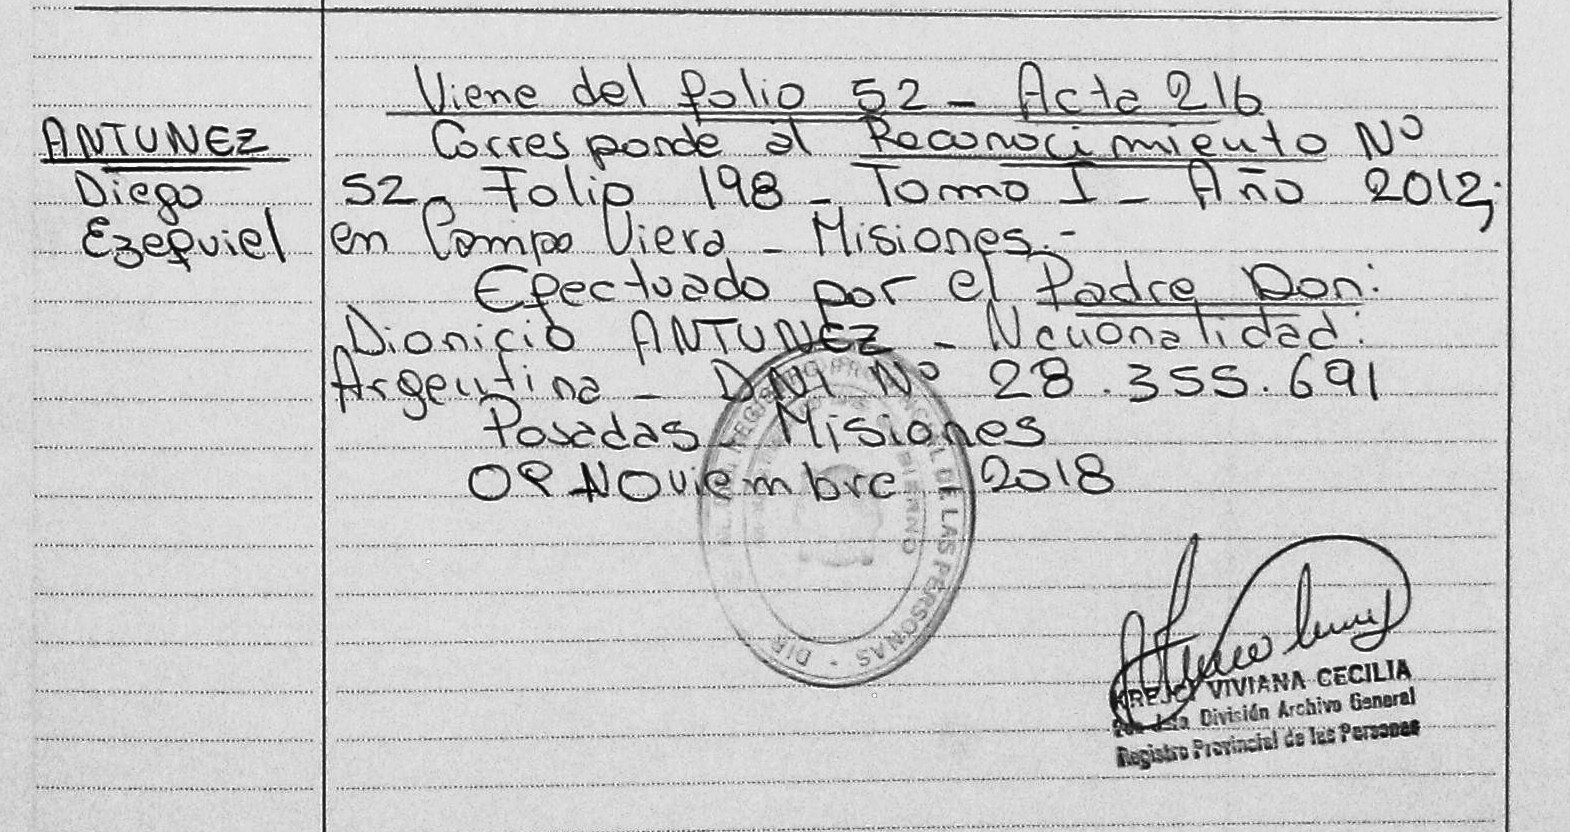 Viene del folio 52 - Acta 216
ANTUNEZ
Diego
Ezequiel
Corresponde al Reconocimiento Nº
52 - Folio 198 - Tomo I - Año 2012;
en Campo Viera - Misiones.-
Efectuado por el Padre Don:
Dionicio ANTUNEZ - Nacionalidad:
Argentina - DNI Nº 28.355.691
Posadas - Misiones
Noviembre 2018
DE LAS PERSONAS - DIR
KREJCI VIVIANA CECILIA
División Archivo General
Registro Provincial de las Personas